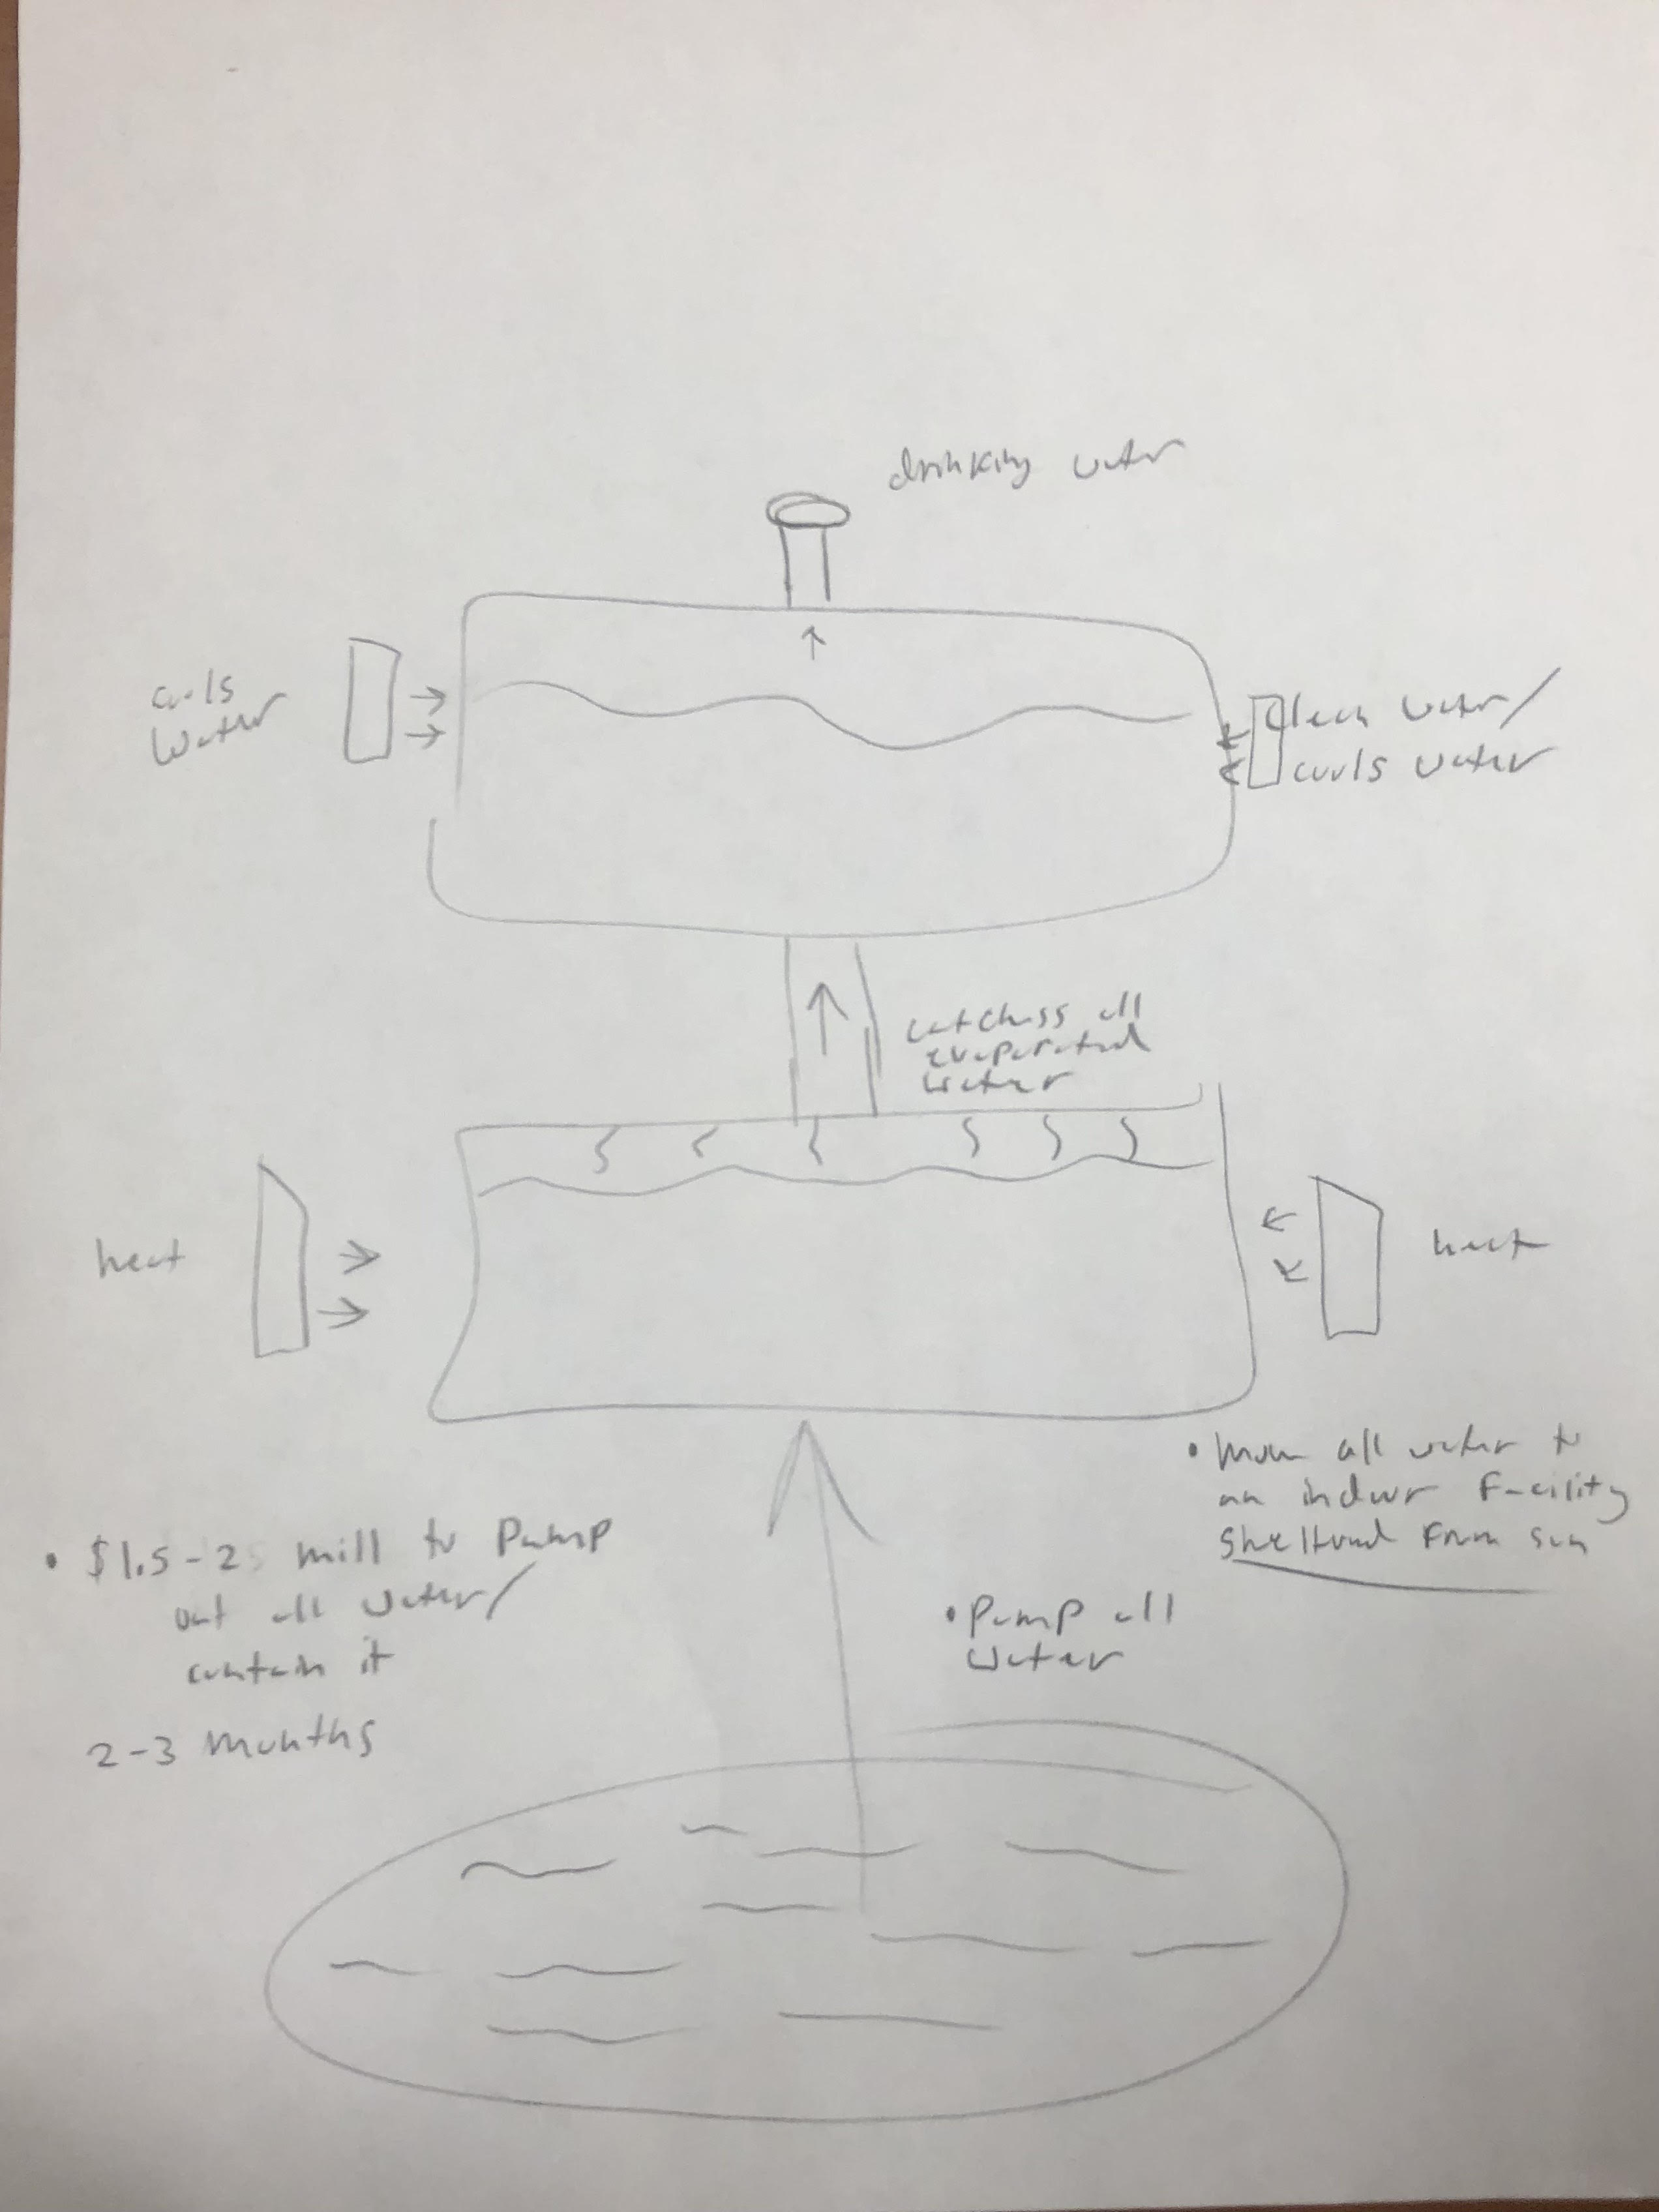 drinking water
cools
water
clean water/
cools water
catchess all
evaporated
water
heat
heat
• move all water to
an indoor facility
sheltered from sun
• $1.5-2 mill to pump
out all water/
contain it
2-3 months
• Pump all
water